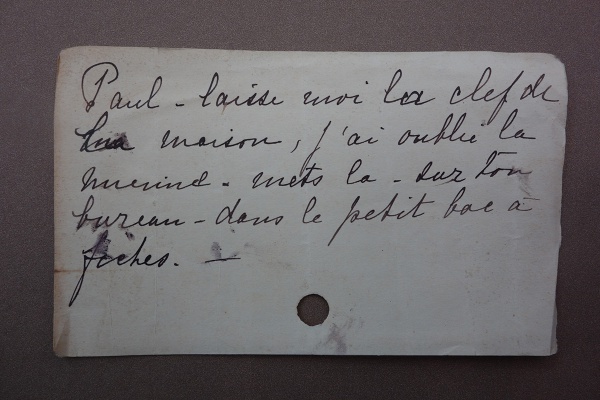 Paul - laisse moi la clef de
la maison, j'ai oublié la
mienne - mets la - sur ton
bureau - dans le petit bac à
fiches. -